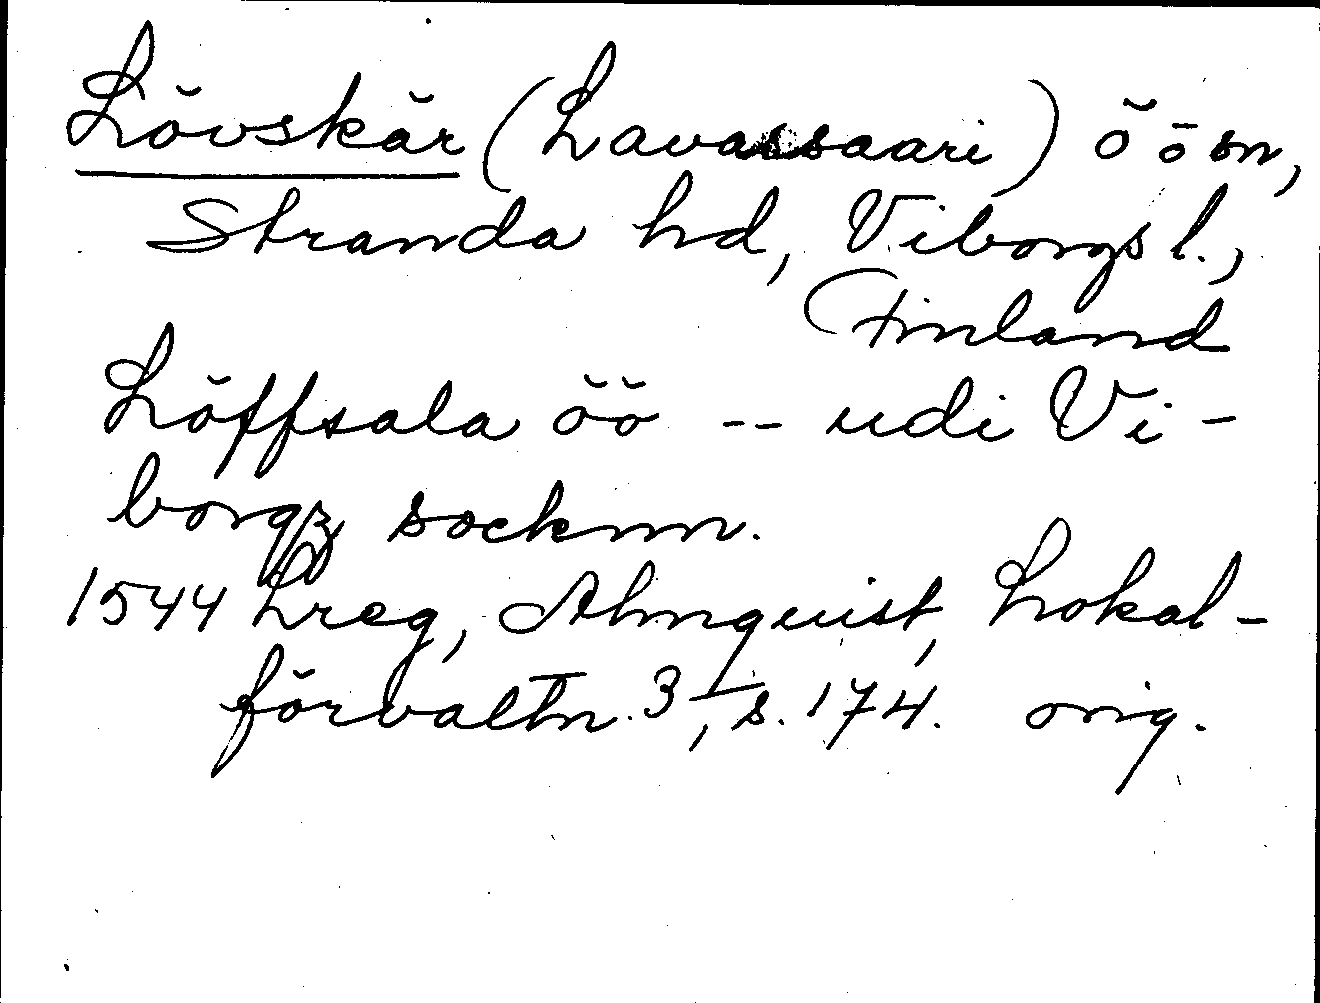 Lövskär (Lavassaari) ö ö sn,
Stranda hd, Viborgs l.,
Finland
Löffsala öö -- udi Vi-
borgz socknn.
1544 Lreg, Almquist, Lokal-
förvaltn. 3, s. 174. orig.